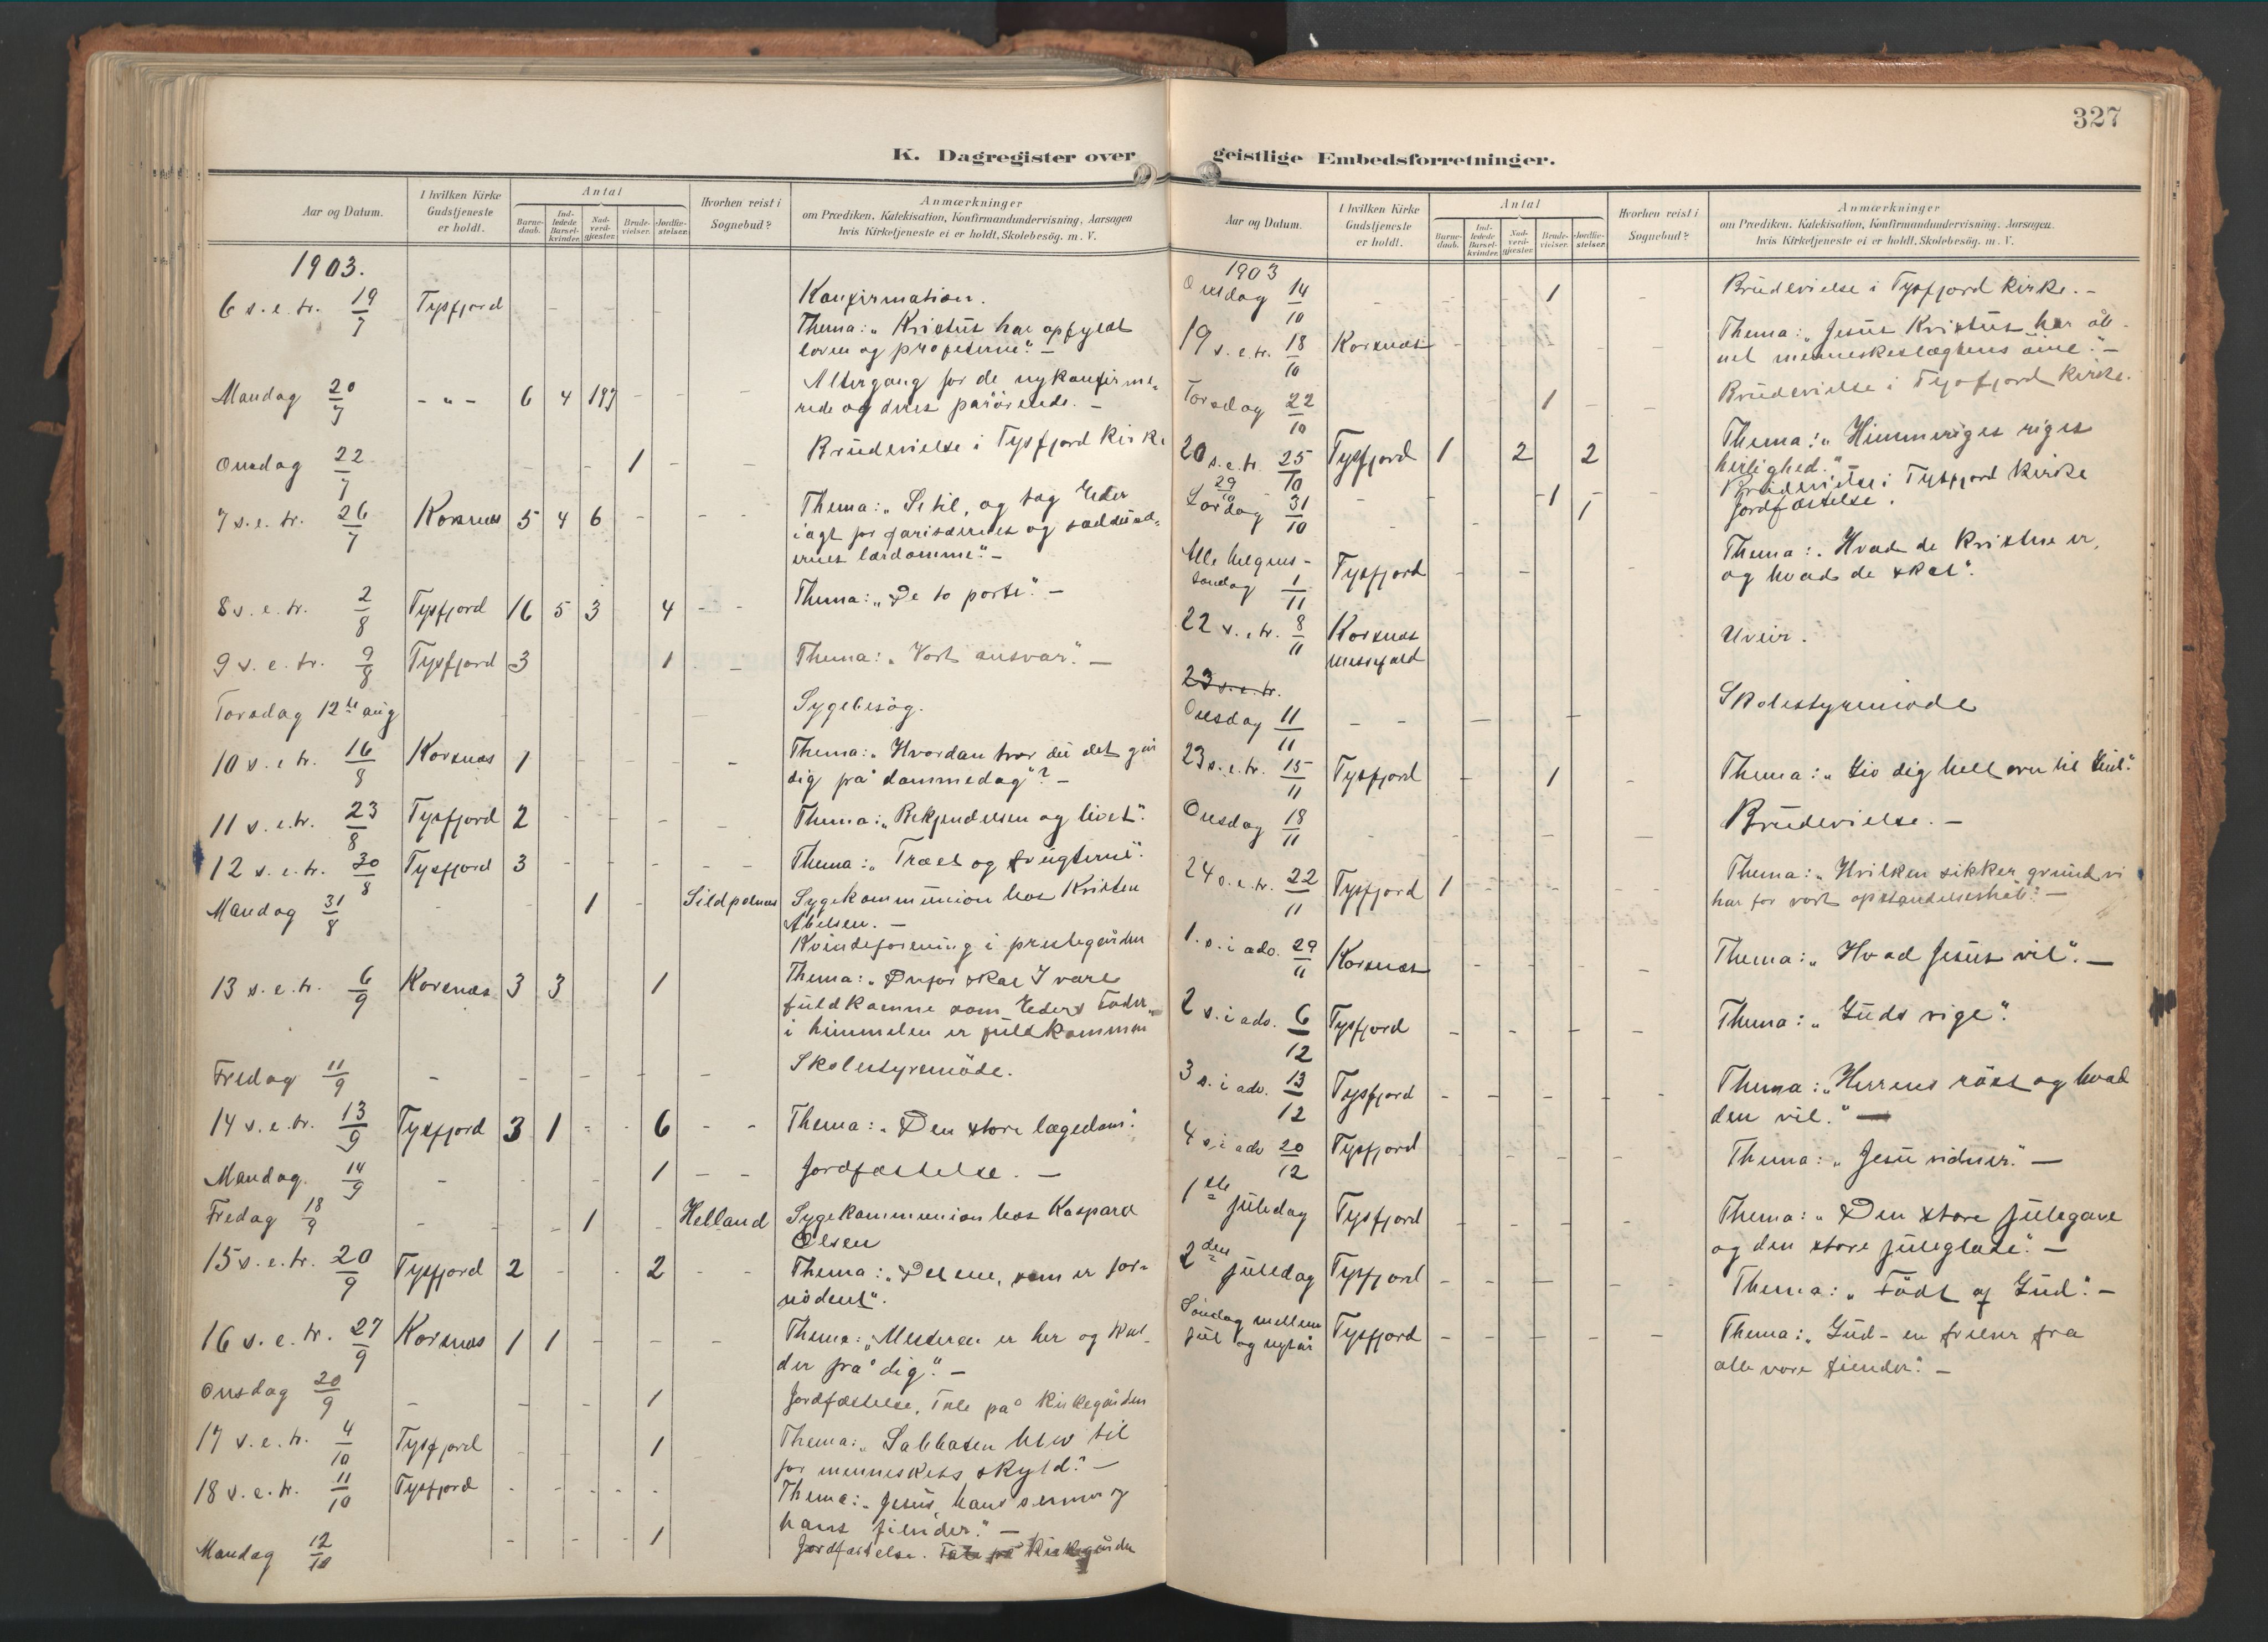 327
K. Dagregister over geistlige Embedsforretninger.
Aar og Datum. I hvilken Kirke Gudstjeneste er holdt. Antal Barnedaab. Indledede Barselkvinder. Nadverdgjæster. Brudevielser. Jordfæstelser. Hvorhen reist i Sognebud? Anmærkninger om Prædiken, Katekisation, Konfirmandundervisning, Aarsagen hvis Kirketjeneste ei er holdt, Skolebesøg. m. V.
1903.
6 s.e.tr. 19/7 Tysfjord - - - Konfirmation.
Thema: „Kristus har opfyldt
loven og profeterne". -
Mandag 20/7 - „ - 6 4 197 - - - Altergang for de nykonfirme-
rede og deres pårørende. -
Onsdag 22/7 - - 1 - - Brudevielse i Tysfjord Kirke
7 s.e.tr. 26/7 Korsnæs 5 4 6 - - - Thema: „Se til, og tag Eder
iagt for farisæernes og saddusæ-
ernes lærdomme". -
8 s.e.tr. 2/8 Tysfjord 16 5 3 4 - - Thema: „De to porte". -
9 s.e.tr. 9/8 Tysfjord 3 1 - Thema: „Vort ansvar". -
Torsdag 12te aug - - - Sygebesøg.
10 s.e.tr. 16/8 Korsnæs 1 - Thema: „Hvordan tror du det går
dig på dommedag"? -
11 s.e.tr. 23/8 Tysfjord 2 - - - - Thema: „Bekjendelsen og livet".
12 s.e.tr. 30/8 Tysfjord 3 - - - - - Thema: „Træet og frugterne".
Mandag 31/8 - - 1 - Sildpolnes Sygekommunion hos Kristen
Abelsen. -
Kvindeforening i prestegården
13 s.e.tr. 6/9 Korsnæs 3 3 1 Thema: „Derfor skal I være
fuldkomne som Eders Fader
i himmelen er fuldkommen
Fredag 11/9 - - - - - - Skolestyremøde.
14 s.e.tr. 13/9 Tysfjord 3 1 - - 6 - - Thema: „Den store lægedom".
Mandag. 14/9 - - - 1 - - Jordfæstelse. -
Fredag 18/9 - - 1 - Helland Sygekommunion hos Kaspara
Olsen
15 s.e.tr. 20/9 Tysfjord 2 - - 2 - - Thema: „Det ene, som er for-
nødent".
16 s.e.tr. 27/9 Korsnæs 1 1 - - - Thema: „Mesteren er her og kal-
der på dig". -
Onsdag 20/9 - - - 1 Jordfæstelse, Tale på Kirkegården
17 s.e.tr. 4/10 Tysfjord - - 1 Thema: „Sabbaten blev til
for menneskets skyld". -
18 s.e.tr. 11/10 Tysfjord - - - - - Thema: „Jesus, hans venner og
hans fiender". -
Mandag 12/10 - - 1 Jordfæstelse. Tale på Kirkegården
Aar og Datum. I hvilken Kirke Gudstjeneste er holdt. Antal Barnedaab. Indledede Barselkvinder. Nadverdgjæster. Brudevielser. Jordfæstelser. Hvorhen reist i Sognebud? Anmærkninger om Prædiken, Katekisation, Konfirmandundervisning, Aarsagen hvis Kirketjeneste ei er holdt, Skolebesøg. m. V.
1903
Onsdag 14/10 - - - 1 - - Brudevielse i Tysfjord Kirke. -
19 s.e.tr. 18/10 Korsnæs - - - - - Thema: „Jesus Kristus har åb-
net menneskeslægtens øine". -
Torsdag 22/10 - - 1 - - Brudevielse i Tysfjord Kirke.
20 s.e.tr. 25/10 Tysfjord 1 2 2 Thema: „Himmeriges riges
herlighed". -
29/10 - - 1 - - Brudevielse i Tysfjord Kirke
Lørdag 31/10 - - 1 Jordfæstelse.
Alle helgens-
søndag 1/11 Tysfjord - - - - Thema: „Hvad de kristne er,
og hvad de skal".
22 s.e.tr. 8/11 Korsnæs
messefald Uveir.
23 s.e.tr.
Onsdag 11/11 - - - - Skolestyremøde
23 s.e.tr. 15/11 Tysfjord - 1 - Thema: „Giv dig helt over til Gud".
Onsdag 18/11 - - - - - - Brudevielse. -
24 s.e.tr. 22/11 Tysfjord 1 - - - - - Thema: „Hvilken sikker grund vi
har for vort opstandelseshåb". -
1. s. i adv. 29/11 Korsnæs - - - - - Thema: „Hvad Jesus vil". -
2 s. i adv. 6/12 Tysfjord - - - - - Thema: „Guds rige".
3 s. i adv. 13/12 Tysfjord - - - - - Thema: „Herrens røst og hvad
den vil." -
4 s. i adv 20/12 Tysfjord - - - - - Thema: „Jesu vidner". -
1ste juledag Tysfjord - - - - - Thema: „Den store julegave
og den store juleglæde". -
2den juledag Tysfjord - - - - - Thema: „Født af Gud". -
Søndag mellem
jul og nytår Tysfjord - - - - - - Thema: „Gud - en frelser fra
alle vore fiender". -